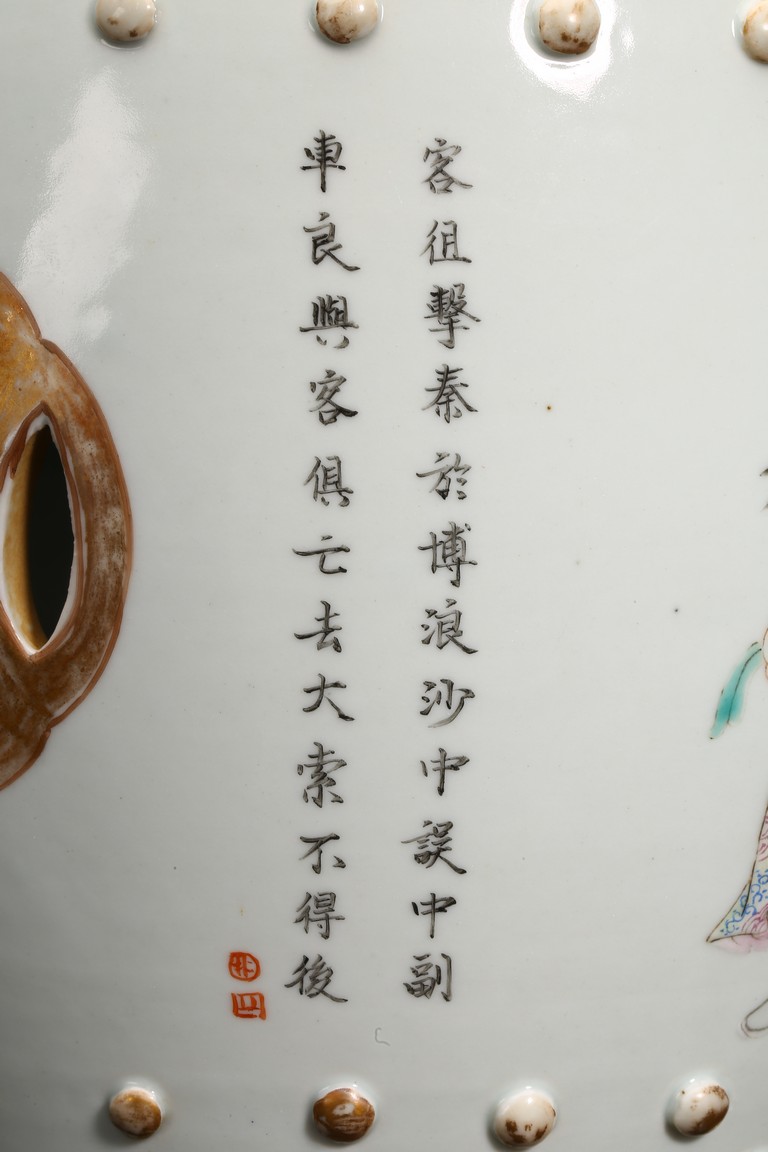 客徂擊秦於博浪沙中誤中副
車良與客俱亡去大索不得後